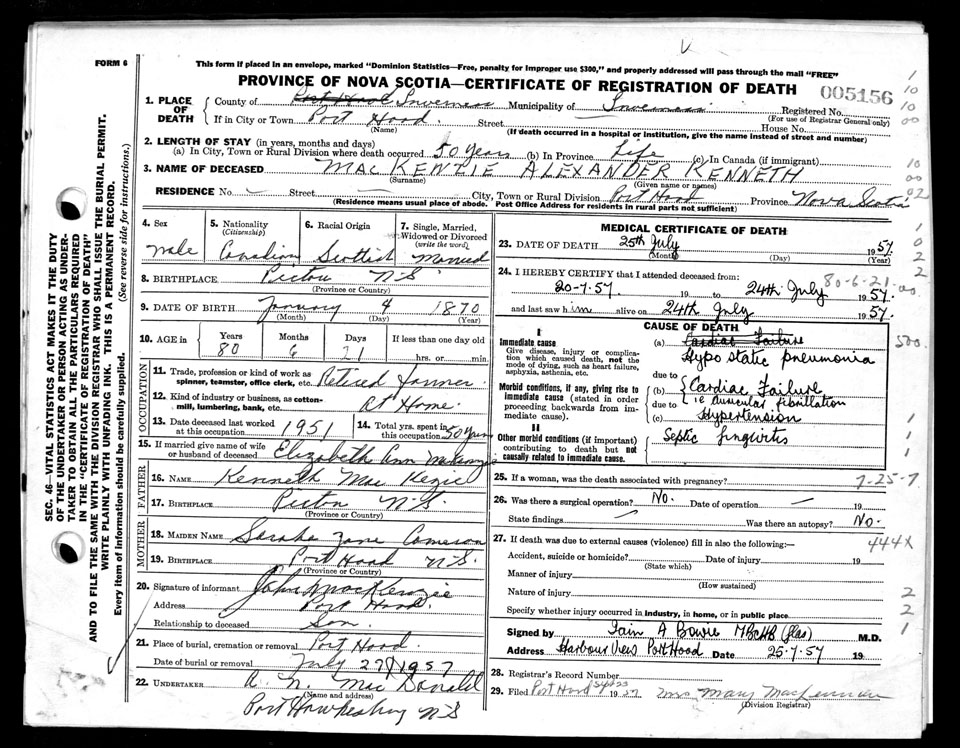 FORM 6
This form if placed in an envelope, marked "Dominion Statistics—Free, penalty for improper use $300," and properly addressed will pass through the mail "FREE"
PROVINCE OF NOVA SCOTIA—CERTIFICATE OF REGISTRATION OF DEATH
005156
1. PLACE OF DEATH
County of Port Hood Inverness Municipality of Inverness Registered No.
(For use of Registrar General only)
If in City or Town Port Hood. Street House No.
(Name) (If death occurred in a hospital or institution, give the name instead of street and number)
2. LENGTH OF STAY (in years, months and days)
(a) In City, Town or Rural Division where death occurred 50 Years (b) In Province Life (c) In Canada (if immigrant)
3. NAME OF DECEASED MACKENZIE ALEXANDER KENNETH
(Surname) (Given name or names)
RESIDENCE No. Street City, Town or Rural Division Port Hood Province Nova Scotia
(Residence means usual place of abode. Post Office Address for residents in rural parts not sufficient)
4. Sex male
5. Nationality (Citizenship) Canadian
6. Racial Origin Scottish
7. Single, Married, Widowed or Divorced (write the word) Married
8. BIRTHPLACE Pictou N S
(Province or Country)
9. DATE OF BIRTH January 4 1870
(Month) (Day) (Year)
10. AGE in Years Months Days If less than one day old
80 6 21 hrs. or min.
OCCUPATION
11. Trade, profession or kind of work as spinner, teamster, office clerk, etc. Retired farmer
12. Kind of industry or business, as cotton-mill, lumbering, bank, etc. At Home.
13. Date deceased last worked at this occupation 1951
14. Total yrs. spent in this occupation 50 Years
15. If married give name of wife or husband of deceased Elizabeth Ann McKenzie
FATHER
16. NAME Kenneth Mac Kezie
17. BIRTHPLACE Picton N.S.
(Province or Country)
MOTHER
18. MAIDEN NAME Saraha Jane Cameron
19. BIRTHPLACE Port Hood N.S.
(Province or Country)
20. Signature of informant John MacKenzie
Address Port Hood.
Relationship to deceased Son.
21. Place of burial, cremation or removal Port Hood.
Date of burial or removal July 27/1957
22. UNDERTAKER A. N. Mac Donald
(Name and address)
Port Hawkesbury N S
MEDICAL CERTIFICATE OF DEATH
23. DATE OF DEATH 25th July 1957.
(Month) (Day) (Year)
24. I HEREBY CERTIFY that I attended deceased from: 80-6-21
20-7-57 19 to 24th July 1957.
and last saw him alive on 24th July 1957.
CAUSE OF DEATH
I
Immediate cause
Give disease, injury or complication which caused death, not the mode of dying, such as heart failure, asphyxia, asthenia, etc.
(a) Cardiac Failure
Hypostatic pneumonia
due to
Morbid conditions, if any, giving rise to immediate cause (stated in order proceeding backwards from immediate cause).
(b) Cardiac Failure
due to ie auricular fibrillation
(c) Hypertension
II
Other morbid conditions (if important) contributing to death but not causally related to immediate cause.
Septic
500.
25. If a woman, was the death associated with pregnancy?
7-25-7
26. Was there a surgical operation? No. Date of operation 19
State findings Was there an autopsy? No.
27. If death was due to external causes (violence) fill in also the following:— 444X
Accident, suicide or homicide? Date of injury 19
(State which)
Manner of injury
(How sustained)
Nature of injury
Specify whether injury occurred in industry, in home, or in public place
Signed by Iain A Bowie MBChB (Glas) M.D.
Address Harbour View Port Hood Date 25-7-57 19
28. Registrar's Record Number
29. Filed Port Hood 19 57 Mrs Mary MacLennan
(Division Registrar)
SEC. 46—VITAL STATISTICS ACT MAKES IT THE DUTY
OF THE UNDERTAKER OR PERSON ACTING AS UNDER-
TAKER TO OBTAIN ALL THE PARTICULARS REQUIRED
IN THE "CERTIFICATE OF REGISTRATION OF DEATH"
AND TO FILE THE SAME WITH THE DIVISION REGISTRAR WHO SHALL ISSUE THE BURIAL PERMIT.
WRITE PLAINLY WITH UNFADING INK. THIS IS A PERMANENT RECORD.
Every item of information should be carefully supplied. (See reverse side for instructions.)